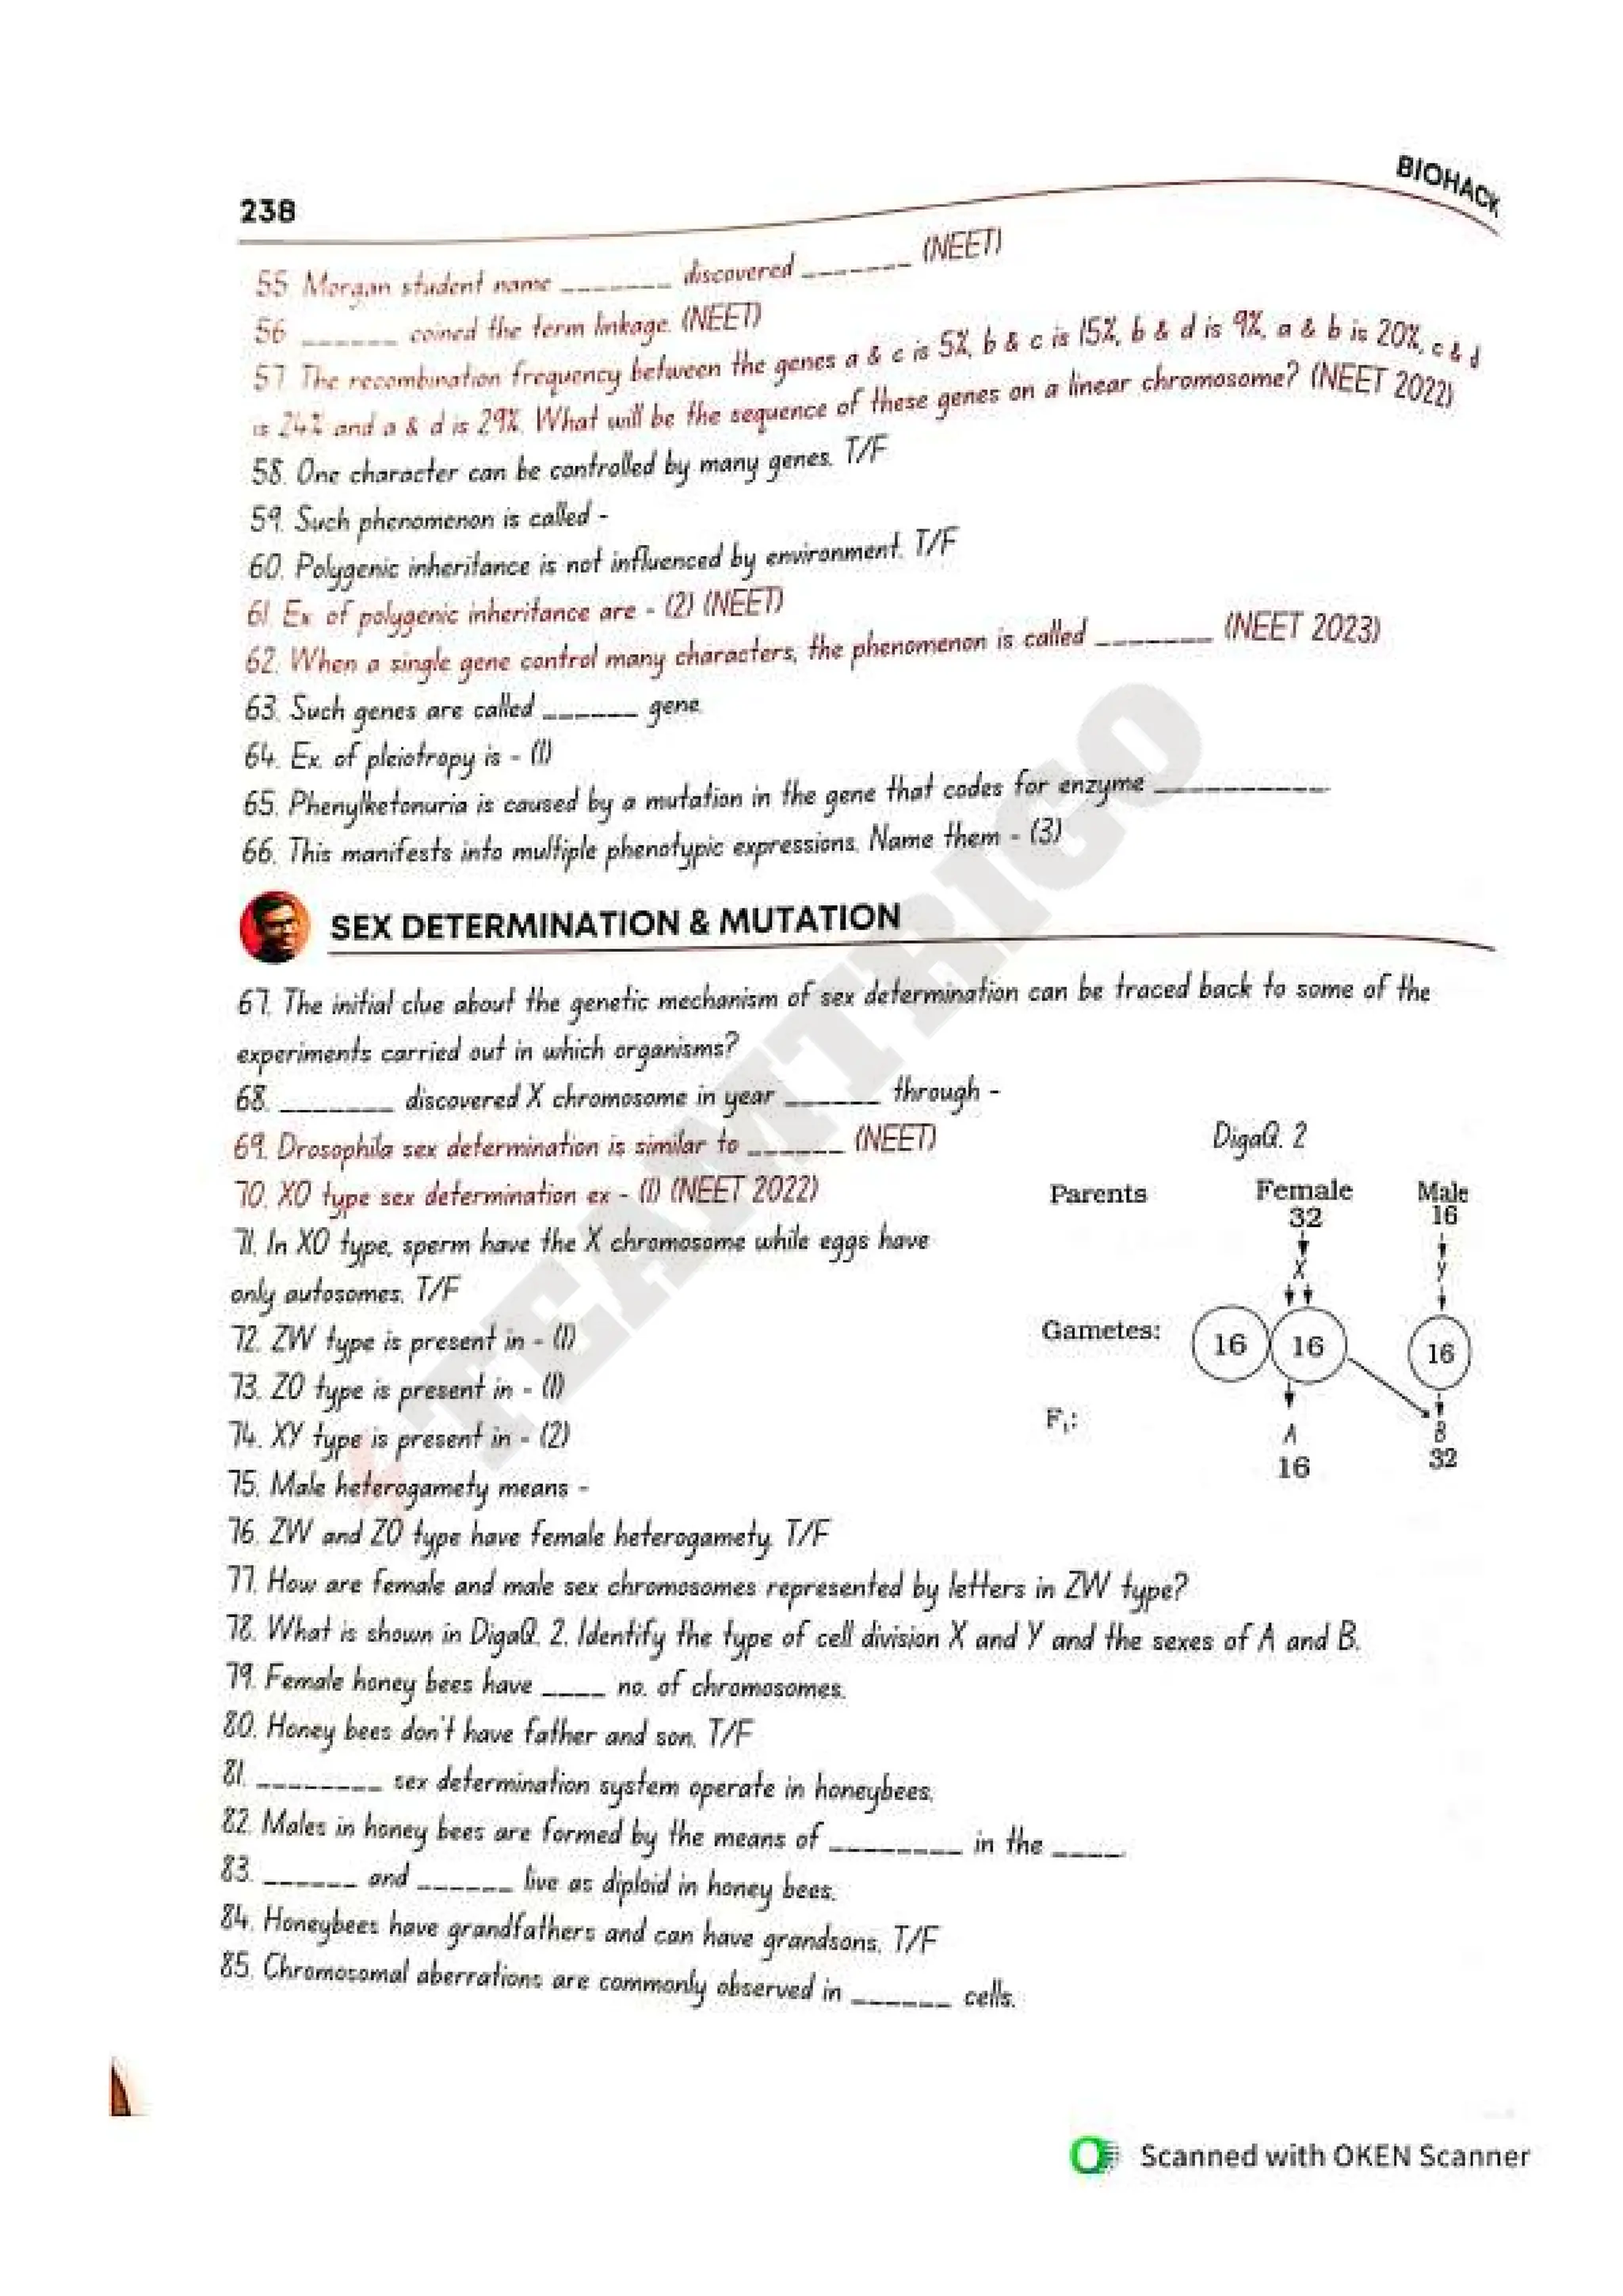 BIOHACK
238
55. Morgan student name _______ discovered _______ (NEET)
56. ______ coined the term linkage. (NEET)
57. The recombination frequency between the genes a & c is 5%, b & c is 15%, b & d is 9%, a & b is 20%, c & d
is 24% and a & d is 29%. What will be the sequence of these genes on a linear chromosome? (NEET 2022)
58. One character can be controlled by many genes. T/F
59. Such phenomenon is called -
60. Polygenic inheritance is not influenced by environment. T/F
61. Ex of polygenic inheritance are - (2) (NEET)
62. When a single gene control many characters, the phenomenon is called _______ (NEET 2023)
63. Such genes are called ______ gene.
64. Ex. of pleiotropy is - (1)
65. Phenylketonuria is caused by a mutation in the gene that codes for enzyme ___________
66. This manifests into multiple phenotypic expressions. Name them - (3)
SEX DETERMINATION & MUTATION
67. The initial clue about the genetic mechanism of sex determination can be traced back to some of the
experiments carried out in which organisms?
68. _______ discovered X chromosome in year ______ through -
69. Drosophila sex determination is similar to ______ (NEET)
70. XO type sex determination ex - (1) (NEET 2022)
71. In XO type, sperm have the X chromosome while eggs have
only autosomes. T/F
72. ZW type is present in - (1)
73. ZO type is present in - (1)
74. XY type is present in - (2)
75. Male heterogamety means -
76. ZW and ZO type have female heterogamety. T/F
77. How are female and male sex chromosomes represented by letters in ZW type?
78. What is shown in DigaQ. 2. Identify the type of cell division X and Y and the sexes of A and B.
79. Female honey bees have ____ no. of chromosomes.
80. Honey bees don't have father and son. T/F
81. ________ sex determination system operate in honeybees.
82. Males in honey bees are formed by the means of ________ in the ____.
83. ______ and ______ live as diploid in honey bees.
84. Honeybees have grandfathers and can have grandsons. T/F
85. Chromosomal aberrations are commonly observed in ______ cells.
DigaQ. 2
Parents Female Male
32 16
X Y
Gametes: 16 16 16
F₁:
A B
16 32
TEAMTRIGO
Scanned with OKEN Scanner